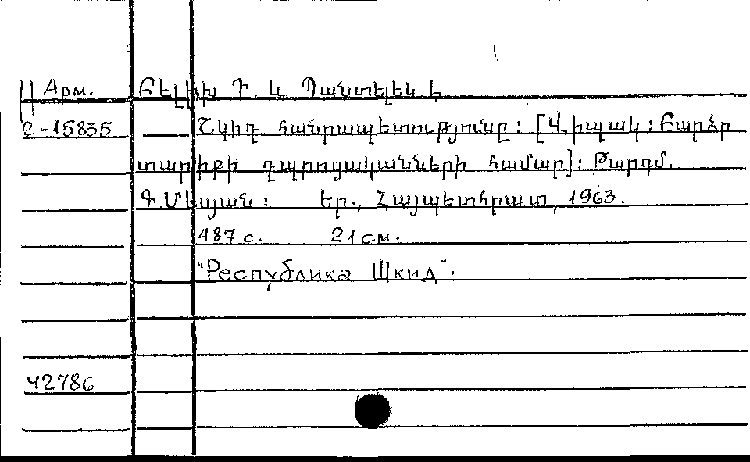 Арм. Բելիխ Գ. և Պանտելեև Լ
2-15835 Շկիդ հանրապետությունը: [Վիպակ: Բարձր
տարիքի դպրոցականների համար]: Թարգմ.
Եր., Հայպետհրատ, 1963.
487 с. 21 см.
"Республика Шкид".
42786